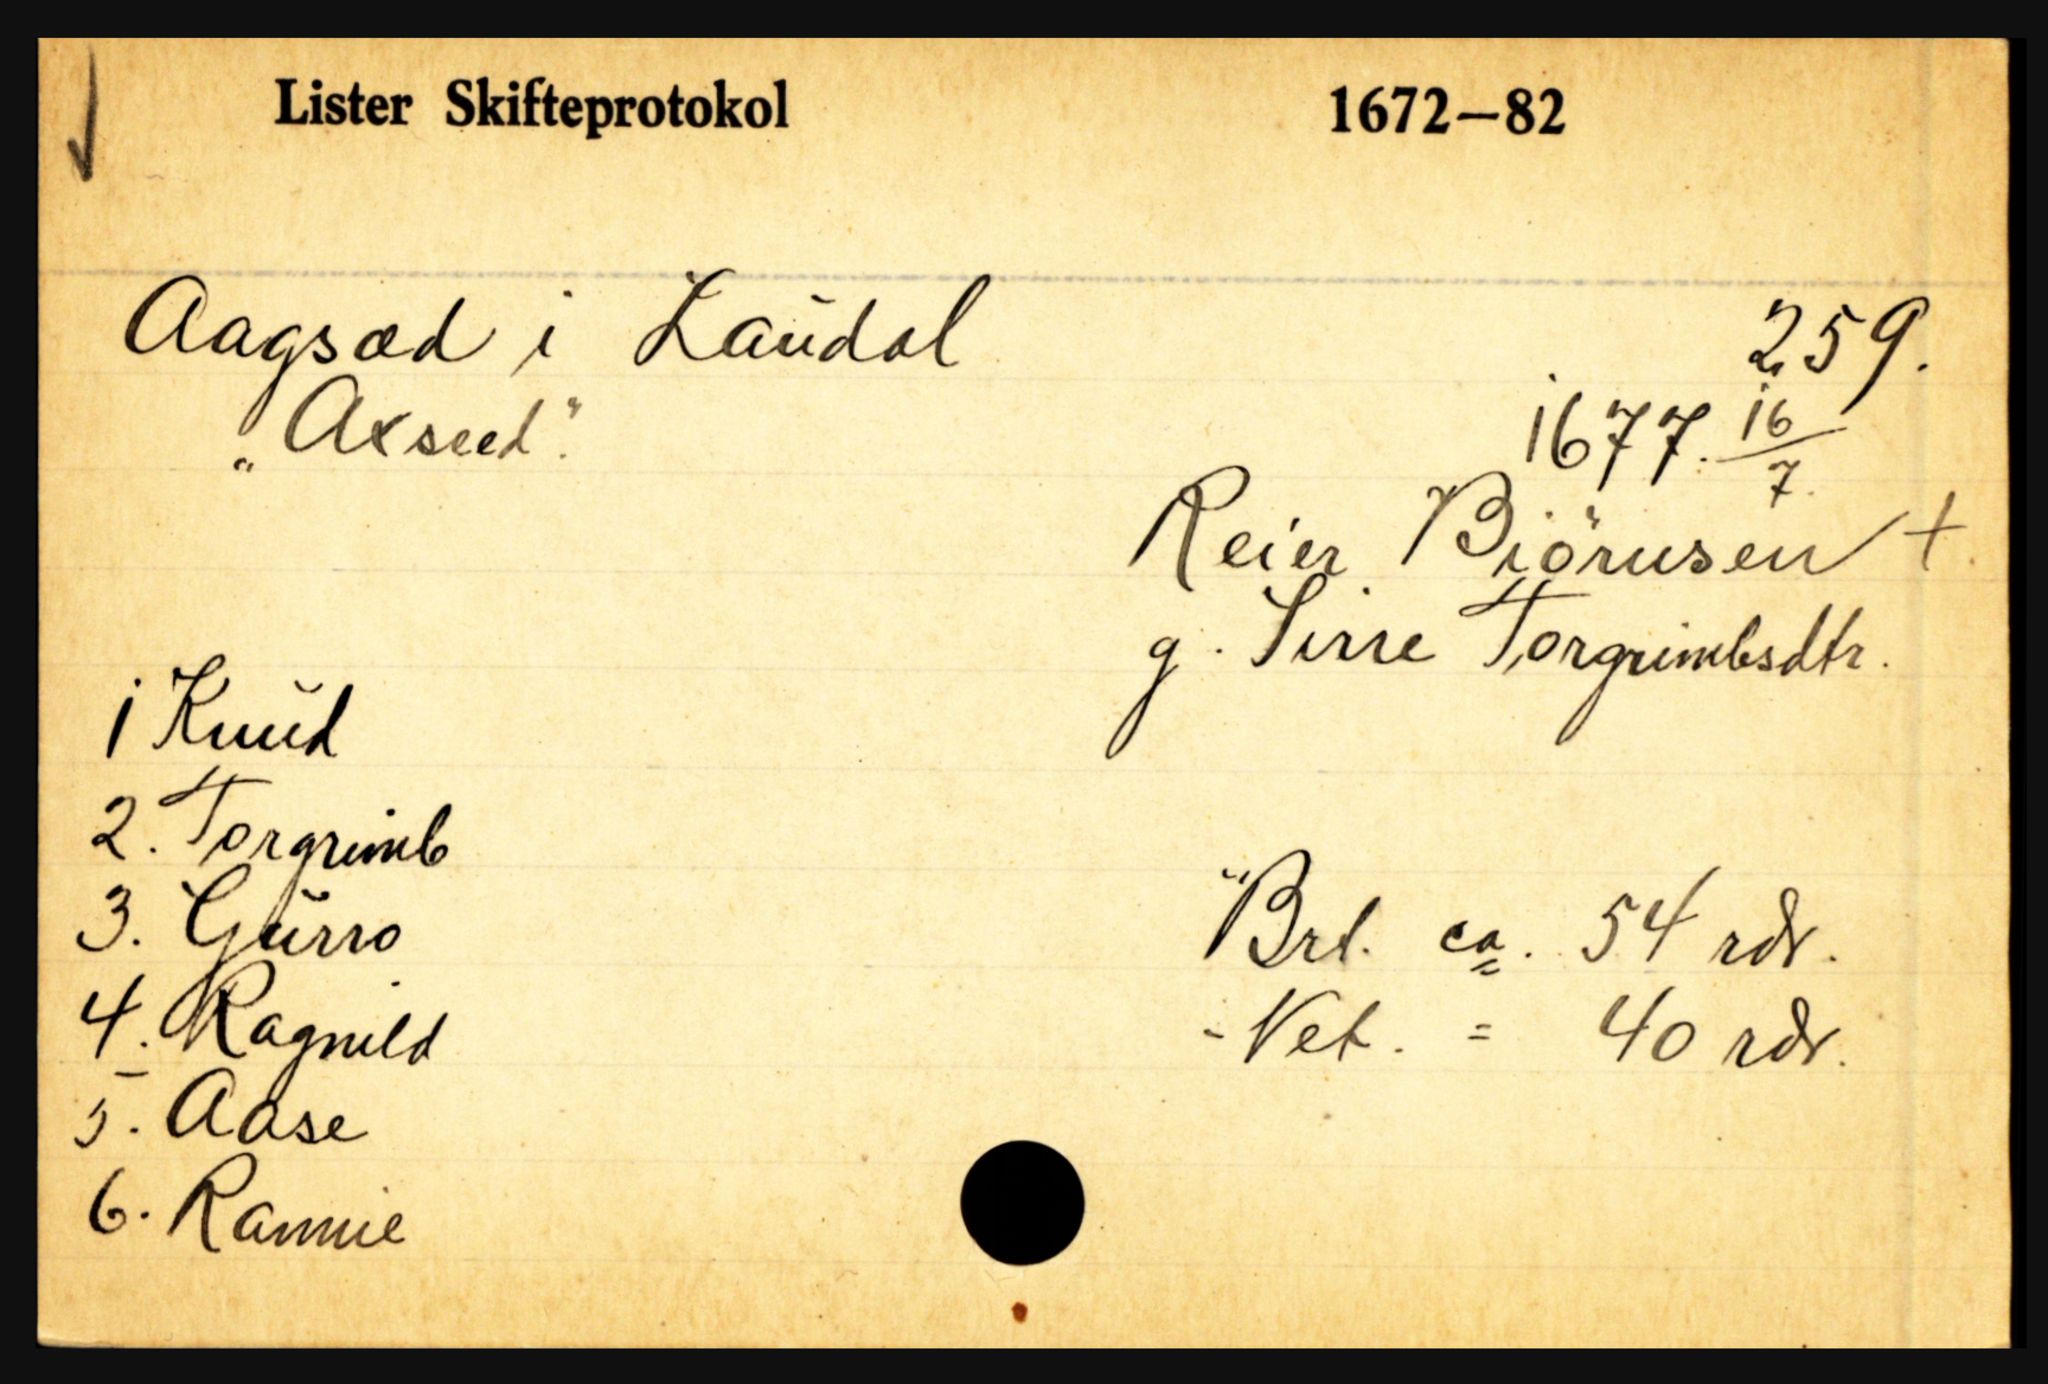 Lister Skifteprotokol 1672–82
Aagsæd i Laudal 259.
„Axseed". 1677. 16/7.
Reier Biörnsen +
g. Sirre Torgrimbsdtr.
1 Knud
2. Torgrimb
3. Gurro
4. Ragnild
5. Aase
6. Rannie
Brt. ca. 54 rdr.
- Net. = 40 rdr.